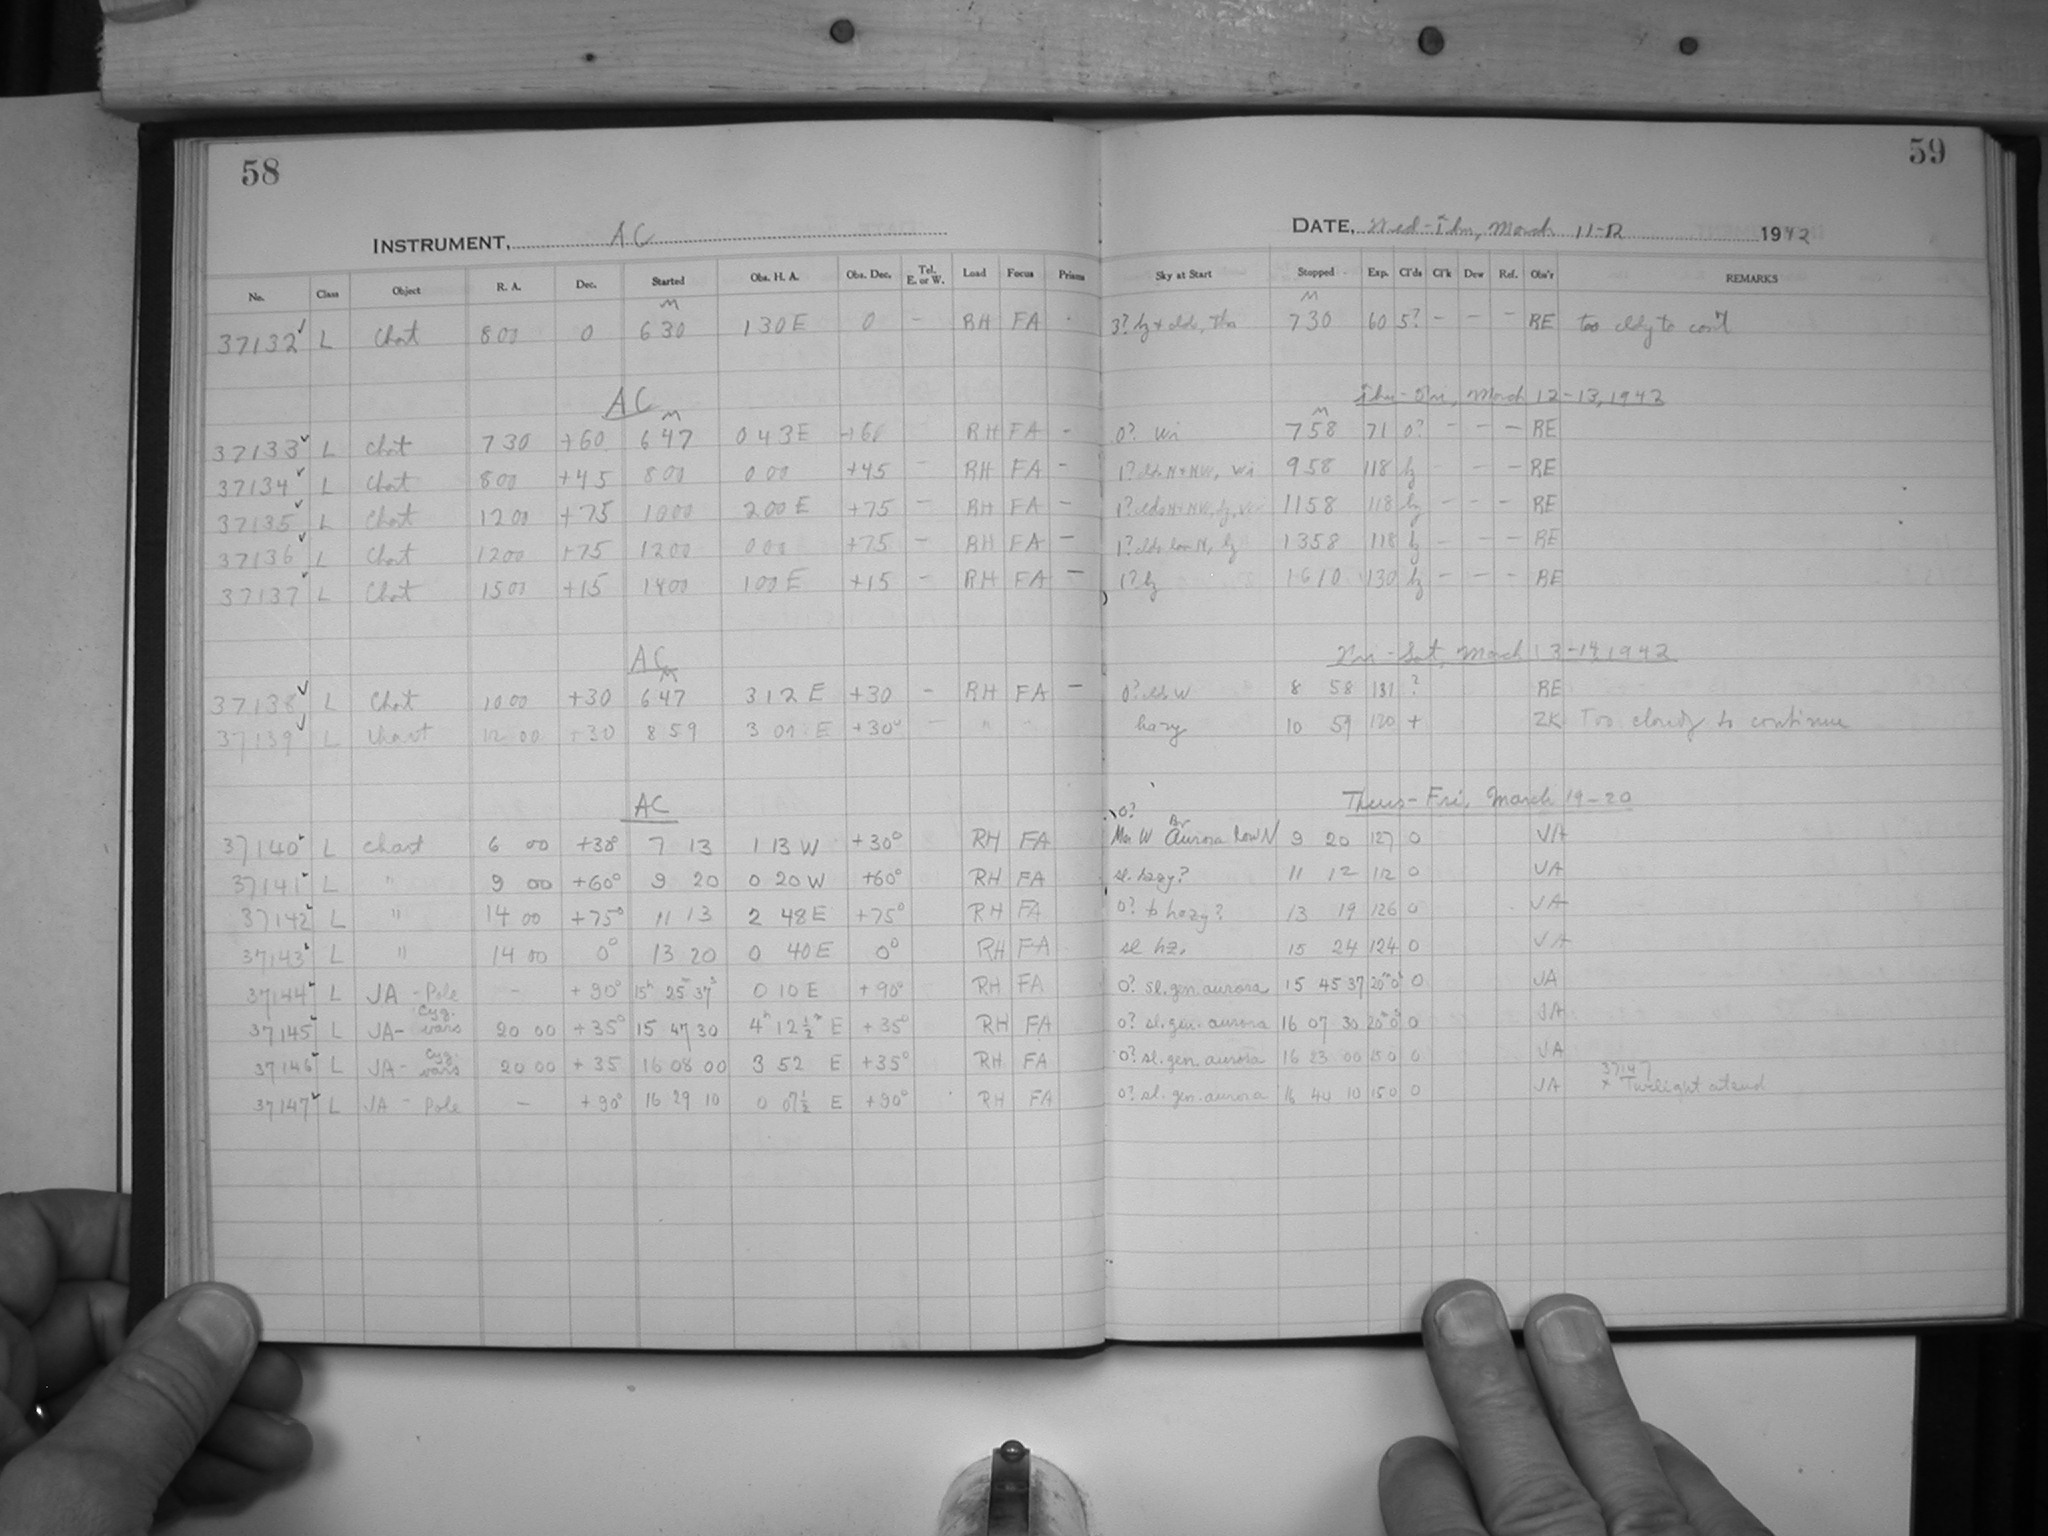 58
59
INSTRUMENT, AC
DATE, Wed-Thu, March 11-12 1942
No. Class Object R. A. Dec. Started Obs. H. A. Obs. Dec. Tel. E. or W. Load Focus Prisms Sky at Start Stopped Exp. Cl'ds Cl'k Dew Ref. Obs'r REMARKS
M M
37132 ✓ L Chart 8 00 0 6 30 1 30 E 0 - RH FA - 3? hz + clds, 7 30 60 5? - - - RE too cldy to con't
AC Thu-Fri, March 12-13, 1942
M M
37133 ✓ L Chart 7 30 +60 6 47 0 43 E +60 RH FA - 0? Wi 7 58 71 0? - - - RE
37134 ✓ L Chart 8 00 +45 8 00 0 00 +45 - RH FA - 1? clds N + NW, Wi 9 58 118 hz - - - RE
37135 ✓ L Chart 12 00 +75 10 00 2 00 E +75 - RH FA - 1? clds N + NW, hz, Wi 11 58 118 hz - - - RE
37136 ✓ L Chart 12 00 +75 12 00 0 00 +75 - RH FA - 1? clds low N, hz 13 58 118 hz - - - RE
37137 ✓ L Chart 15 00 +15 14 00 1 00 E +15 - RH FA - 1? hz 16 10 130 hz - - - RE
AC Fri-Sat, March 13-14, 1942
M
37138 ✓ L Chart 10 00 +30 6 47 3 12 E +30 - RH FA - 0? clds W 8 58 131 ? RE
37139 ✓ L Chart 12 00 +30 8 59 3 01 E +30° - " " hazy 10 59 120 + ZK Too cloudy to continue
AC Thurs-Fri, March 19-20
0?
37140 ✓ L chart 6 00 +30° 7 13 1 13 W +30° RH FA W Br Aurora low N 9 20 127 0 JA
37141 ✓ L " 9 00 +60° 9 20 0 20 W +60° RH FA sl. hazy? 11 12 112 0 JA
37142 ✓ L " 14 00 +75° 11 13 2 48 E +75° RH FA 0? to hazy? 13 19 126 0 JA
37143 ✓ L " 14 00 0° 13 20 0 40 E 0° RH FA sl hz. 15 24 124 0 JA
37144 ✓ L JA - Pole - +90° 15h 25 37s 0 10 E +90° RH FA 0? sl. gen. aurora 15 45 37 20m 0s 0 JA
37145 ✓ L JA - Cyg. vars 20 00 +35° 15 47 30 4h 12½m E +35° RH FA 0? sl. gen. aurora 16 07 30 20m 0s 0 JA
37146 ✓ L JA - Cyg. vars 20 00 +35 16 08 00 3 52 E +35° RH FA 0? sl. gen. aurora 16 23 00 15 0 0 JA
37147 ✓ L JA - Pole - +90° 16 29 10 0 07½ E +90° RH FA 0? sl. gen. aurora 16 44 10 15 0 0 JA 37147 x Twilight at end